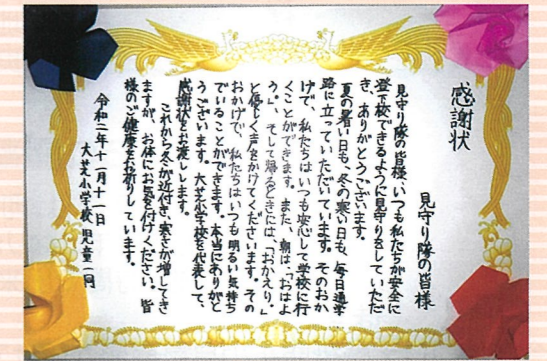 感謝状
見守り隊の皆様
見守り隊の皆様、いつも私たちが安全に
登下校できるように見守りをしていただ
き、ありがとうございます。
夏の暑い日も、冬の寒い日も、毎日通学
路に立っていただいています。そのおか
げで、私たちはいつも安心して学校に行
くことができます。また、朝は、「おはよ
う。」、そして帰るときには、「おかえり。」
と優しく声をかけてくださいます。その
おかげで、私たちはいつも明るい気持ち
でいることができます。本当にありがと
うございます。大芝小学校を代表して、
感謝状をお渡しします。
これから冬が近付き、寒さが増してき
ますが、お体にお気を付けください。皆
様のご健康をお祈りしています。
令和二年十一月十一日
大芝小学校 児童一同